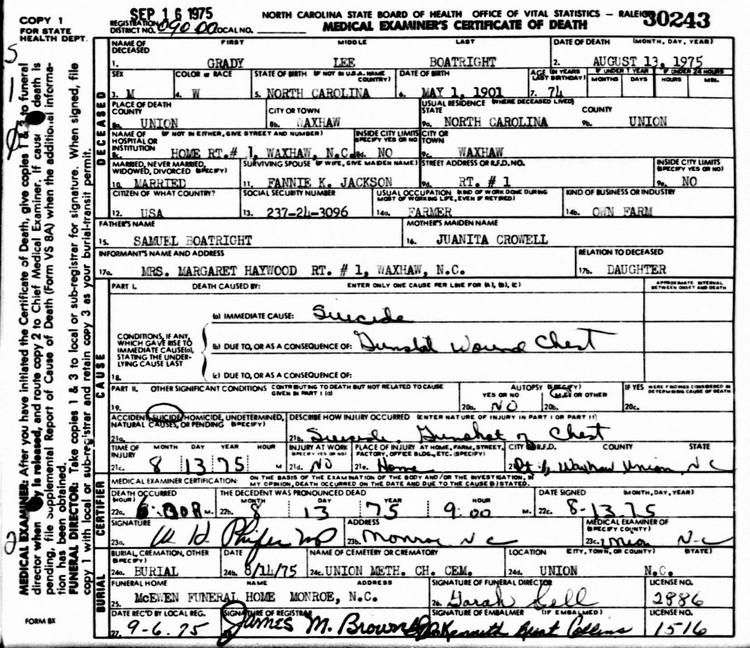 COPY 1
FOR STATE
HEALTH DEPT.
SEP 16 1975
NORTH CAROLINA STATE BOARD OF HEALTH OFFICE OF VITAL STATISTICS – RALEIGH
30243
REGISTRATION DISTRICT NO. 090 00 LOCAL NO.
MEDICAL EXAMINER'S CERTIFICATE OF DEATH
NAME OF DECEASED FIRST MIDDLE LAST DATE OF DEATH (MONTH, DAY, YEAR)
1. GRADY LEE BOATRIGHT 2. AUGUST 13, 1975
SEX COLOR or RACE STATE OF BIRTH (IF NOT IN U.S.A. NAME COUNTRY) DATE OF BIRTH AGE (IN YEARS LAST BIRTHDAY) IF UNDER 1 YEAR IF UNDER 24 HOURS
MONTHS DAYS HOURS MIN.
3. M 4. W 5. NORTH CAROLINA 6. MAY 1, 1901 7. 74
PLACE OF DEATH COUNTY CITY OR TOWN USUAL RESIDENCE (WHERE DECEASED LIVED) STATE COUNTY
8a. UNION 8b. WAXHAW 9a. NORTH CAROLINA 9b. UNION
NAME OF HOSPITAL OR INSTITUTION (IF NOT IN EITHER, GIVE STREET AND NUMBER) INSIDE CITY LIMITS (SPECIFY YES OR NO) CITY OR TOWN
8c. HOME RT. # 1, WAXHAW, N.C. 8d. NO 9c. WAXHAW
MARRIED, NEVER MARRIED, WIDOWED, DIVORCED (SPECIFY) SURVIVING SPOUSE (IF WIFE, GIVE MAIDEN NAME) STREET ADDRESS OR R.F.D. NO. INSIDE CITY LIMITS (SPECIFY YES OR NO)
10. MARRIED 11. FANNIE K. JACKSON 9d. RT. # 1 9e. NO
CITIZEN OF WHAT COUNTRY? SOCIAL SECURITY NUMBER USUAL OCCUPATION (KIND OF WORK DONE DURING MOST OF WORKING LIFE, EVEN IF RETIRED) KIND OF BUSINESS OR INDUSTRY
12. USA 13. 237-24-3096 14a. FARMER 14b. OWN FARM
FATHER'S NAME MOTHER'S MAIDEN NAME
15. SAMUEL BOATRIGHT 16. JUANITA CROWELL
INFORMANT'S NAME AND ADDRESS RELATION TO DECEASED
17a. MRS. MARGARET HAYWOOD RT. # 1, WAXHAW, N.C. 17b. DAUGHTER
PART I. DEATH CAUSED BY: ENTER ONLY ONE CAUSE PER LINE FOR (A), (B), (C) APPROXIMATE INTERVAL BETWEEN ONSET AND DEATH
(a) IMMEDIATE CAUSE: Suicide
CONDITIONS, IF ANY, WHICH GAVE RISE TO IMMEDIATE CAUSE (a), STATING THE UNDERLYING CAUSE LAST
(b) DUE TO, OR AS A CONSEQUENCE OF: Gunshot Wound Chest
18. (c) DUE TO, OR AS A CONSEQUENCE OF:
PART II. OTHER SIGNIFICANT CONDITIONS CONTRIBUTING TO DEATH BUT NOT RELATED TO CAUSE GIVEN IN PART I (a) AUTOPSY (SPECIFY) YES OR NO M.E. OR OTHER IF YES WERE FINDINGS CONSIDERED IN DETERMINING CAUSE OF DEATH
19. 20a. NO 20b. 20c.
ACCIDENT, SUICIDE, HOMICIDE, UNDETERMINED, NATURAL CAUSES, OR PENDING (SPECIFY) DESCRIBE HOW INJURY OCCURRED (ENTER NATURE OF INJURY IN PART I OR PART II)
21a. 21b. Suicide Gunshot of Chest
TIME OF INJURY MONTH DAY YEAR HOUR INJURY AT WORK (SPECIFY YES OR NO) PLACE OF INJURY AT HOME, FARM, STREET, FACTORY, OFFICE BLDG., ETC. (SPECIFY) CITY OR R.F.D. COUNTY STATE
21c. 8 13 75 M. 21d. NO 21e. Home 21f. Rt 1 Waxhaw Union, N C
MEDICAL EXAMINER CERTIFICATION: ON THE BASIS OF THE EXAMINATION OF THE BODY AND/OR THE INVESTIGATION, IN MY OPINION, DEATH OCCURRED ON THE DATE AND DUE TO THE CAUSE(S) STATED.
DEATH OCCURRED (HOUR) THE DECEDENT WAS PRONOUNCED DEAD MONTH DAY YEAR HOUR DATE SIGNED
22a. M. 22b. 8 13 75 9:00 M. 22c. 8-13-75
SIGNATURE ADDRESS MEDICAL EXAMINER OF (SPECIFY COUNTY) STATE
23a. W H Phifer MD 23b. Monroe N C 23c. Union N-C
BURIAL, CREMATION, OTHER (SPECIFY) DATE NAME OF CEMETERY OR CREMATORY LOCATION (CITY, TOWN, OR COUNTY) (STATE)
24a. BURIAL 24b. 8/14/75 24c. UNION METH. CH. CEM. 24d. UNION N.C.
FUNERAL HOME NAME ADDRESS SIGNATURE OF FUNERAL DIRECTOR LICENSE NO.
25. McEWEN FUNERAL HOME MONROE, N.C. 26. Sell 2886
DATE REC'D BY LOCAL REG. SIGNATURE OF REGISTRAR SIGNATURE OF EMBALMER (IF EMBALMED) LICENSE NO.
27. 9-6-75 James M. Brown Kenneth Collins 1516
FORM 8X
DECEASED
CAUSE
CERTIFIER
BURIAL
MEDICAL EXAMINER: After you have initiated the Certificate of Death, give copies 1 & 3 to funeral
director when body is released, and route copy 2 to Chief Medical Examiner. If cause of death is
pending, file Supplemental Report of Cause of Death (Form VS 8A) when the additional informa-
tion has been obtained.
FUNERAL DIRECTOR: Take copies 1 & 3 to local or sub-registrar for signature. When signed, file
copy 1 with local or sub-registrar and retain copy 3 as your burial-transit permit.